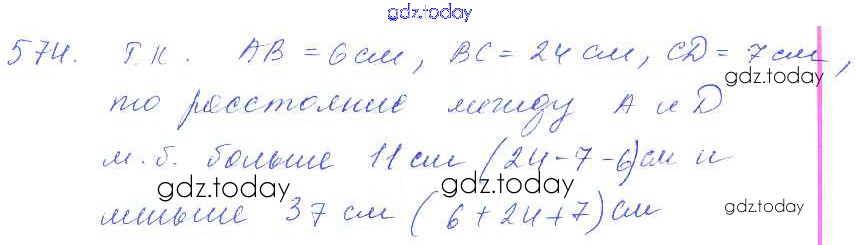 gdz.today
574. Т.к. AB = 6 см, BC = 24 см, CD = 7 см,
gdz.today
то расстояние между A и D
м.б. больше 11 см (24-7-6) см и
gdz.today gdz.today
меньше 37 см (6+24+7) см
gdz.today